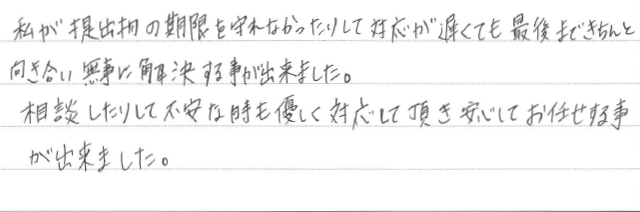 私が提出物の期限を守れなかったりして対応が遅くても最後まできちんと
向き合い無事に解決する事が出来ました。
相談したりして不安な時も優しく対応して頂き安心してお任せする事
が出来ました。